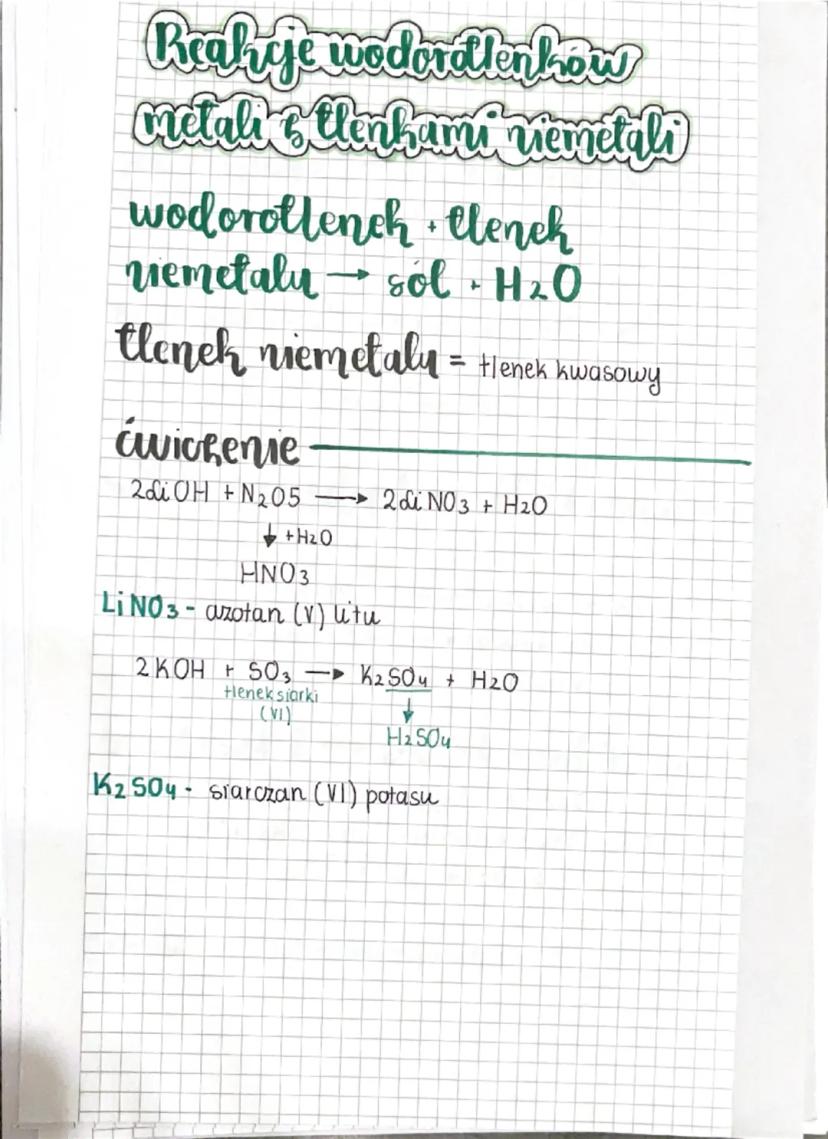 Reakcje wodorotlenków
metali z tlenkami niemetali
wodorotlenek + tlenek
niemetalu → sól + H2O
tlenek niemetalu = tlenek kwasowy
ćwiczenie
2LiOH + N2O5 → 2LiNO3 + H2O
↓ +H2O
HNO3
LiNO3 - azotan (V) litu
2KOH + SO3 → K2SO4 + H2O
tlenek siarki
(VI)
↓
H2SO4
K2SO4 - siarczan (VI) potasu